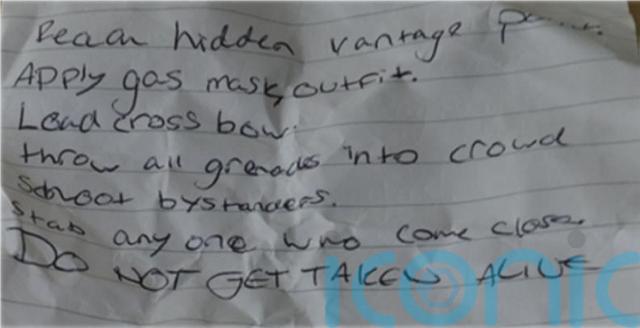 Reach hidden vantage
Apply gas mask, outfit.
Load cross bow.
throw all grenads into crowd
Schoot bystanders.
Stab any one who come close.
DO NOT GET TAKEN ALIVE
iconic